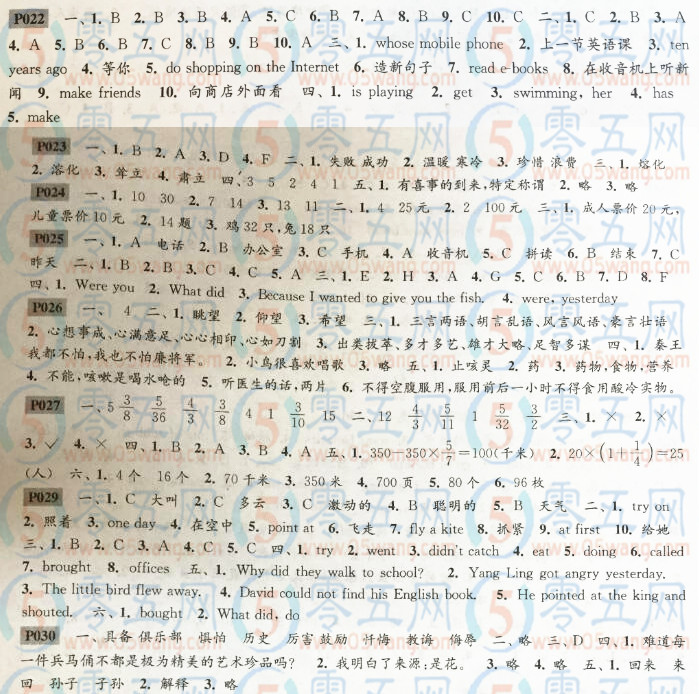 P022 一、1. B 2. B 3. B 4. A 5. C 6. B 7. A 8. B 9. C 10. C 二、1. C 2. B 3. A
4. A 5. B 6. B 7. C 8. B 9. B 10. A 三、1. whose mobile phone 2. 上一节英语课 3. ten
years ago 4. 等你 5. do shopping on the Internet 6. 造新句子 7. read e-books 8. 在收音机上听新
闻 9. make friends 10. 向商店外面看 四、1. is playing 2. get 3. swimming, her 4. has
5. make
P023 一、1. B 2. A 3. D 4. F 二、1. 失败 成功 2. 温暖 寒冷 3. 珍惜 浪费 三、1. 熔化
2. 溶化 3. 耸立 4. 肃立 四、3 5 2 4 1 五、1. 有喜事的到来,特定称谓 2. 略 3. 略
P024 一、1. 10 30 2. 7 14 3. 13 11 二、1. 4 25元 2. 2 100元 三、1. 成人票价20元,
儿童票价10元 2. 14题 3. 鸡32只,兔18只
P025 一、1. A 电话 2. B 办公室 3. C 手机 4. A 收音机 5. C 拼读 6. B 结束 7. C
昨天 二、1. B 2. B 3. C 4. C 5. A 三、1. E 2. H 3. A 4. G 5. C 6. B 7. D 8. F
四、1. Were you 2. What did 3. Because I wanted to give you the fish. 4. were, yesterday
P026 一、 4 二、1. 眺望 2. 仰望 3. 希望 三、1. 三言两语、胡言乱语、风言风语、豪言壮语
2. 心想事成、心满意足、心心相印、心如刀割 3. 出类拔萃、多才多艺、雄才大略、足智多谋 四、1. 秦王
我都不怕,我也不怕廉将军。 2. 小鸟很喜欢唱歌 3. 略 五、1. 止咳灵 2. 药 3. 药物,食物,营养
4. 不能,咳嗽是喝水呛的 5. 听医生的话,两片 6. 不得空腹服用,服用前后一小时不得食用酸冷实物。
P027 一、5 3/8 5/36 4/3 3/8 4 1 3/10 15 二、12 4/3 5/11 1 5/32 3/2 三、1. × 2. ×
3. ✓ 4. × 四、1. B 2. A 3. B 4. A 五、1. 350-350×5/7=100(千米) 2. 20×(1+1/4)=25
(人) 六、1. 4个 16个 2. 70千米 3. 350米 4. 700页 5. 80个 6. 96枚
P029 一、1. C 大叫 2. C 多云 3. C 激动的 4. B 聪明的 5. B 天气 二、1. try on
2. 照着 3. one day 4. 在空中 5. point at 6. 飞走 7. fly a kite 8. 抓紧 9. at first 10. 给她
三、1. B 2. C 3. A 4. C 5. C 四、1. try 2. went 3. didn't catch 4. eat 5. doing 6. called
7. brought 8. offices 五、1. Why did they walk to school? 2. Yang Ling got angry yesterday.
3. The little bird flew away. 4. David could not find his English book. 5. He pointed at the king and
shouted. 六、1. bought 2. What did, do
P030 一、具备 俱乐部 惧怕 历史 厉害 鼓励 忏悔 教诲 侮辱 二、略 三、D 四、1. 难道每
一件兵马俑不都是极为精美的艺术珍品吗? 2. 我明白了来源;是花。 3. 略 4. 略 五、1. 回来 来
回 孙子 子孙 2. 解释 3. 略